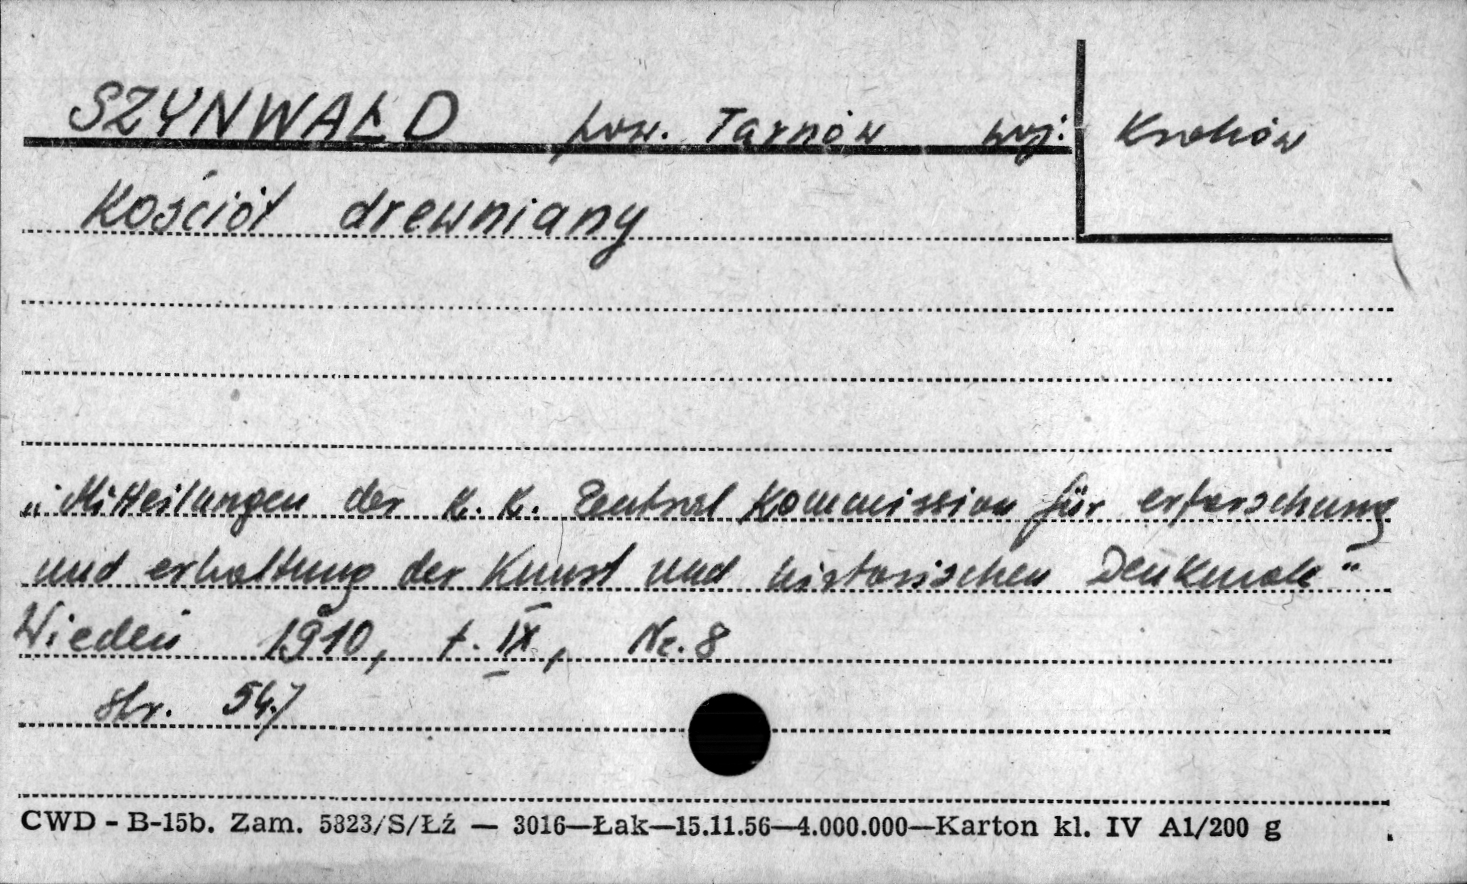 SZYNWAŁD pow. Tarnów woj. Kraków
Kościół drewniany
„Mitteilungen der K. K. Zentral Kommission für erforschung
und erhaltung der Kunst und historischen Denkmale"
Wiedeń 1910, t. IX, Nr. 8
str. 547
CWD - B-15b. Zam. 5823/S/Łź — 3016—Łak—15.11.56—4.000.000—Karton kl. IV A1/200 g